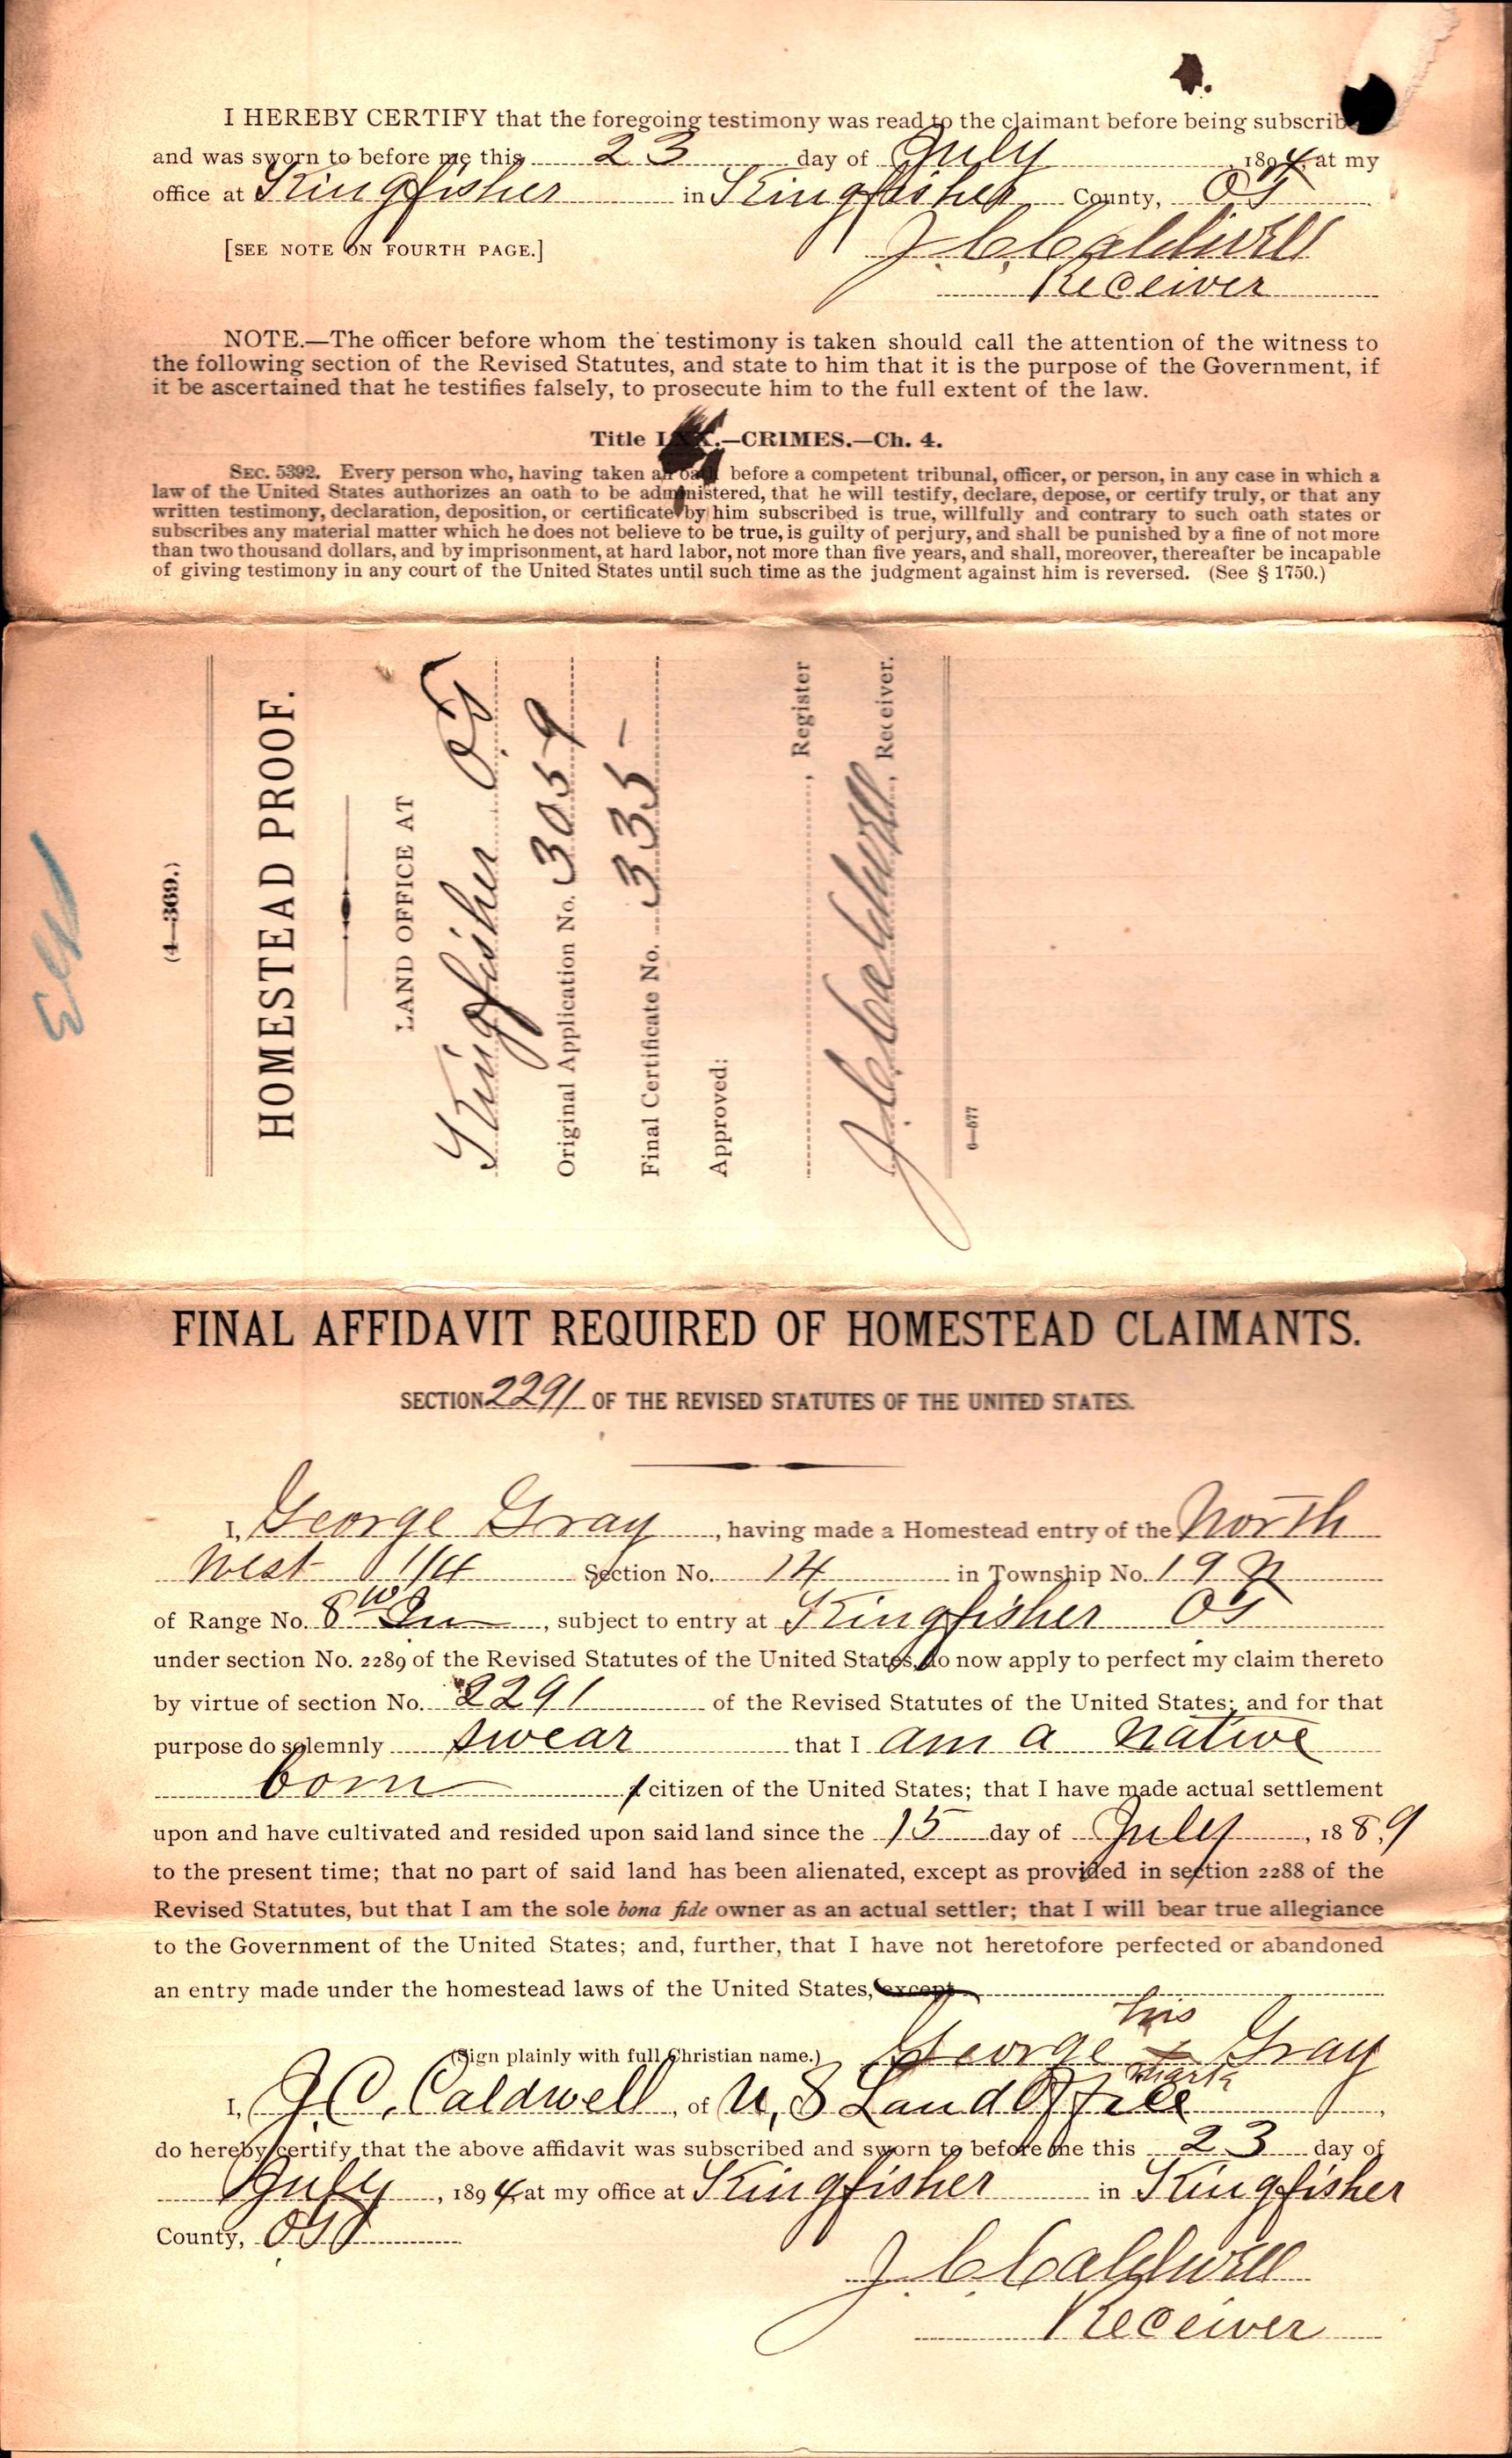 I HEREBY CERTIFY that the foregoing testimony was read to the claimant before being subscrib
and was sworn to before me this 23 day of July, 1894, at my
office at Kingfisher in Kingfisher County, OT
[SEE NOTE ON FOURTH PAGE.]
J. C. Caldwell
Receiver
NOTE.—The officer before whom the testimony is taken should call the attention of the witness to
the following section of the Revised Statutes, and state to him that it is the purpose of the Government, if
it be ascertained that he testifies falsely, to prosecute him to the full extent of the law.
Title LXX.—CRIMES.—Ch. 4.
SEC. 5392. Every person who, having taken an oath before a competent tribunal, officer, or person, in any case in which a
law of the United States authorizes an oath to be administered, that he will testify, declare, depose, or certify truly, or that any
written testimony, declaration, deposition, or certificate by him subscribed is true, willfully and contrary to such oath states or
subscribes any material matter which he does not believe to be true, is guilty of perjury, and shall be punished by a fine of not more
than two thousand dollars, and by imprisonment, at hard labor, not more than five years, and shall, moreover, thereafter be incapable
of giving testimony in any court of the United States until such time as the judgment against him is reversed. (See § 1750.)
(4—369.)
HOMESTEAD PROOF.
LAND OFFICE AT
Kingfisher O.T
Original Application No. 3059
Final Certificate No. 335 –
Approved:
, Register
J. C. Caldwell, Receiver.
6—577
FINAL AFFIDAVIT REQUIRED OF HOMESTEAD CLAIMANTS.
SECTION 2291 OF THE REVISED STATUTES OF THE UNITED STATES.
I, George Gray, having made a Homestead entry of the North
West 1/4 Section No. 14 in Township No. 19 N
of Range No. 8 W Im, subject to entry at Kingfisher OT
under section No. 2289 of the Revised Statutes of the United States, do now apply to perfect my claim thereto
by virtue of section No. 2291 of the Revised Statutes of the United States; and for that
purpose do solemnly swear that I am a native
born citizen of the United States; that I have made actual settlement
upon and have cultivated and resided upon said land since the 15 day of July, 1889
to the present time; that no part of said land has been alienated, except as provided in section 2288 of the
Revised Statutes, but that I am the sole bona fide owner as an actual settler; that I will bear true allegiance
to the Government of the United States; and, further, that I have not heretofore perfected or abandoned
an entry made under the homestead laws of the United States, except
his
(Sign plainly with full Christian name.) George x Gray
mark
I, J. C. Caldwell, of U. S Land Office,
do hereby certify that the above affidavit was subscribed and sworn to before me this 23 day of
July, 1894, at my office at Kingfisher in Kingfisher
County, OT
J. C. Caldwell
Receiver